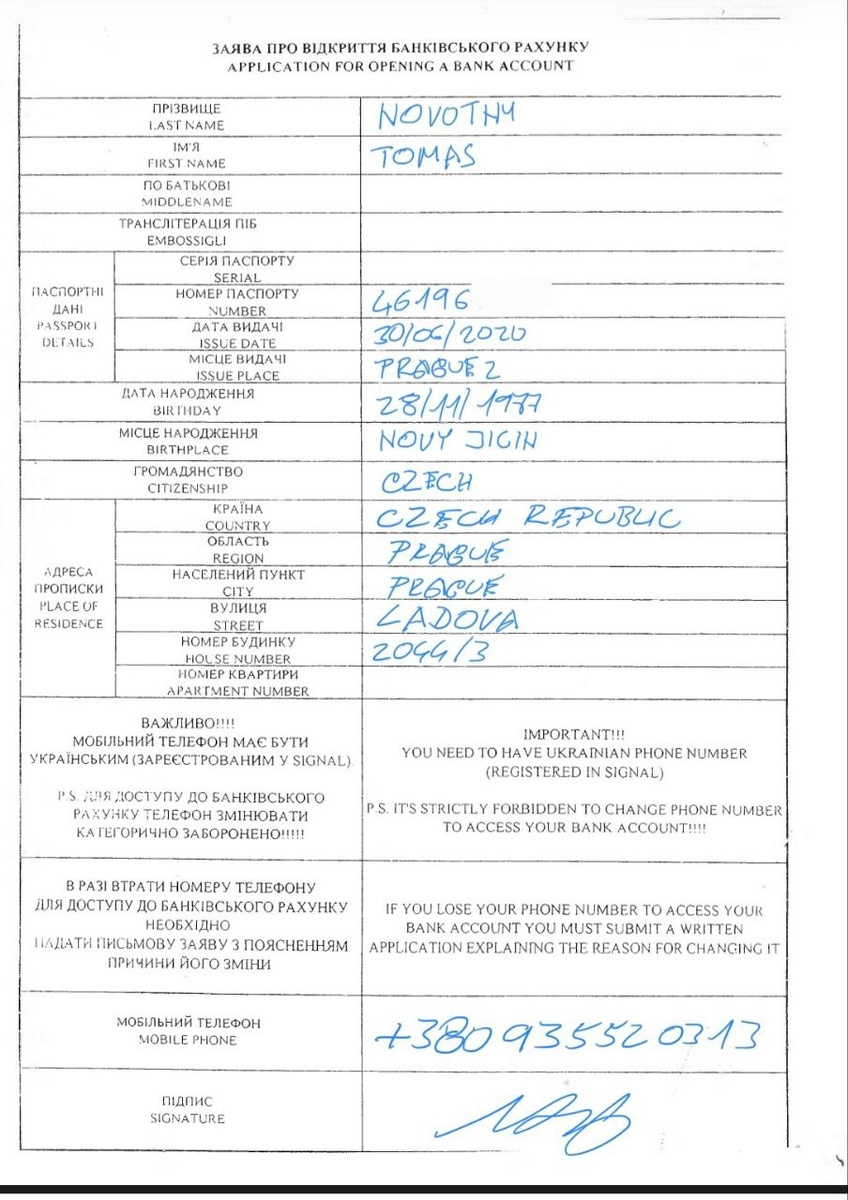 ЗАЯВА ПРО ВІДКРИТТЯ БАНКІВСЬКОГО РАХУНКУ
APPLICATION FOR OPENING A BANK ACCOUNT
ПРІЗВИЩЕ
LAST NAME
NOVOTNY
ІМ'Я
FIRST NAME
TOMAS
ПО БАТЬКОВІ
MIDDLENAME
ТРАНСЛІТЕРАЦІЯ ПІБ
EMBOSSIGLI
ПАСПОРТНІ
ДАНІ
PASSPORT
DETAILS
СЕРІЯ ПАСПОРТУ
SERIAL
НОМЕР ПАСПОРТУ
NUMBER
46196
ДАТА ВИДАЧІ
ISSUE DATE
30/06/2020
МІСЦЕ ВИДАЧІ
ISSUE PLACE
PRAGUE 2
ДАТА НАРОДЖЕННЯ
BIRTHDAY
28/11/1977
МІСЦЕ НАРОДЖЕННЯ
BIRTHPLACE
NOVY JICIN
ГРОМАДЯНСТВО
CITIZENSHIP
CZECH
АДРЕСА
ПРОПИСКИ
PLACE OF
RESIDENCE
КРАЇНА
COUNTRY
CZECH REPUBLIC
ОБЛАСТЬ
REGION
PRAGUE
НАСЕЛЕНИЙ ПУНКТ
CITY
PRAGUE
ВУЛИЦЯ
STREET
LADOVA
НОМЕР БУДИНКУ
HOUSE NUMBER
2044/3
НОМЕР КВАРТИРИ
APARTMENT NUMBER
ВАЖЛИВО!!!!
МОБІЛЬНИЙ ТЕЛЕФОН МАЄ БУТИ
УКРАЇНСЬКИМ (ЗАРЕЄСТРОВАНИМ У SIGNAL).
P.S. ДЛЯ ДОСТУПУ ДО БАНКІВСЬКОГО
РАХУНКУ ТЕЛЕФОН ЗМІНЮВАТИ
КАТЕГОРИЧНО ЗАБОРОНЕНО!!!!!
IMPORTANT!!!
YOU NEED TO HAVE UKRAINIAN PHONE NUMBER
(REGISTERED IN SIGNAL)
P.S. IT'S STRICTLY FORBIDDEN TO CHANGE PHONE NUMBER
TO ACCESS YOUR BANK ACCOUNT!!!!
В РАЗІ ВТРАТИ НОМЕРУ ТЕЛЕФОНУ
ДЛЯ ДОСТУПУ ДО БАНКІВСЬКОГО РАХУНКУ
НЕОБХІДНО
НАДАТИ ПИСЬМОВУ ЗАЯВУ З ПОЯСНЕННЯМ
ПРИЧИНИ ЙОГО ЗМІНИ
IF YOU LOSE YOUR PHONE NUMBER TO ACCESS YOUR
BANK ACCOUNT YOU MUST SUBMIT A WRITTEN
APPLICATION EXPLAINING THE REASON FOR CHANGING IT
МОБІЛЬНИЙ ТЕЛЕФОН
MOBILE PHONE
+380 935520313
ПІДПИС
SIGNATURE